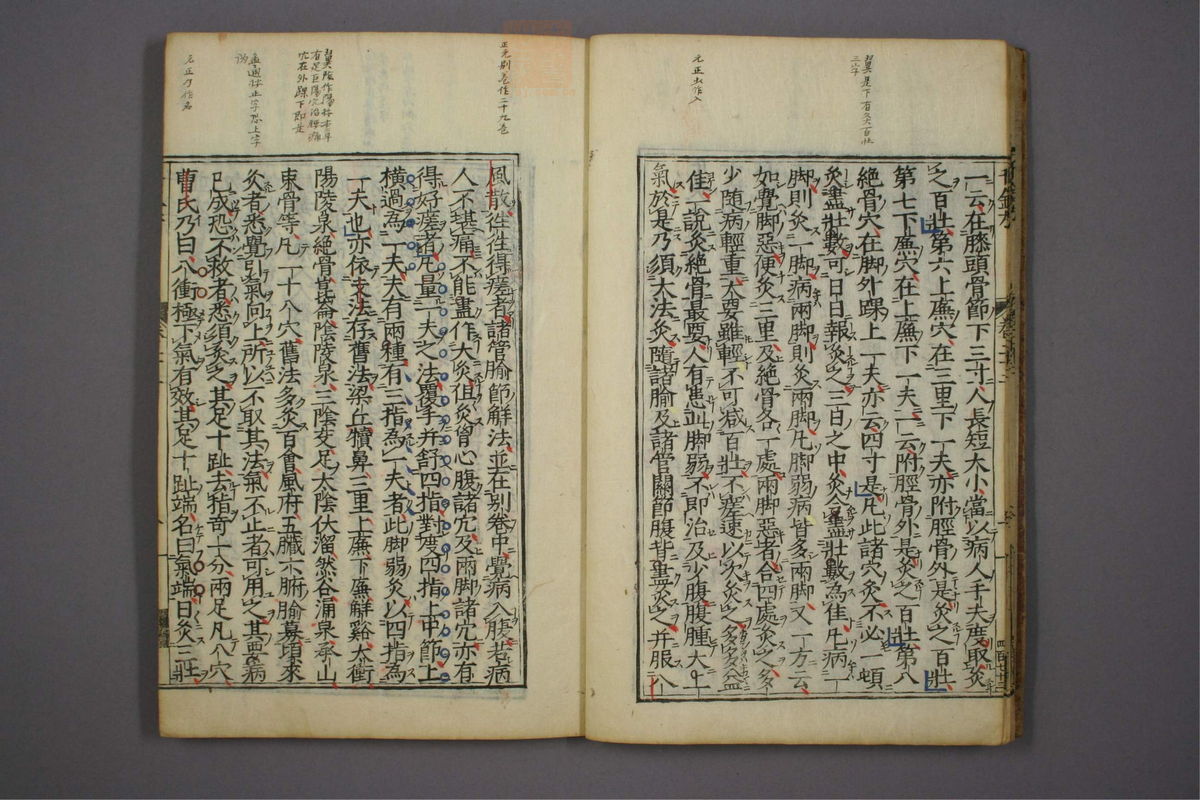 翼見下有灸百壯
三字
元正大作入
一云在膝頭骨節下三寸人長短大小當以病人手夫度取灸
之百壯第六上廉穴在三里下一夫亦附脛骨外是灸之百壯
第七下廉穴在上廉下一夫一云附脛骨外是灸之百壯第八
絶骨穴在脚外踝上一夫亦云四寸是凡此諸穴灸不必一頓
灸盡壯數可日日報灸之三日之中灸令盡壯數為佳凡上病一
脚則灸一脚病兩脚則灸兩脚凡脚弱病皆多兩脚又一方云
如覺脚惡便灸三里及絶骨各一處兩脚惡者合四處灸之多
少隨病輕重大要雖輕不可減百壯不瘥速以次灸之多多益
佳一說灸絶骨最要人有患此脚弱不即治及入少腹腹腫大上
氣於是乃須大法灸隨諸腧及諸管關節腹背盡灸之并服八
正元別卷作二十九卷
翼陰作陽
有足巨陽穴治
穴在外踝下即是
元正乃作名
風散往往得瘥者諸管腧節解法並在別卷中覺病入腹若病
人不堪痛不能盡作大灸但灸胷心腹諸穴及兩脚諸穴亦有
得好瘥者凡量一夫之法覆手并舒四指對度四指上中節上
橫過為一夫夫有兩種有三指為一夫者此脚弱灸以四指為
一夫也亦依支法存舊法梁丘犢鼻三里上廉下廉解谿太衝
陽陵泉絶骨崑崙陰陵泉三陰交足太陰伏溜然谷涌泉承山
束骨等凡一十八穴舊法多灸百會風府五臟六腑腧募頃來
灸者悉覺引氣向上所以不取其法氣不止者可用之其要病
已成恐不救者悉須灸之其足十趾去指奇一分兩足凡八穴
曹氏乃曰八衝極下氣有效其足十趾端名曰氣端日灸三壯